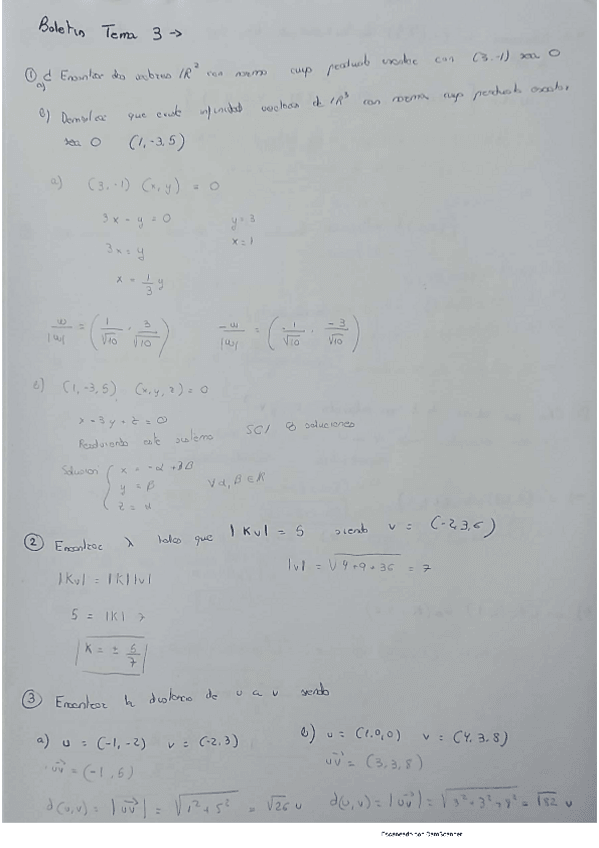 Boletin Tema 3 →
① a) Encontrar dos vectores ℝ² con norma cuyo producto escalar con (3,-1) sea 0
b) Demostrar que existe infinidad vectores de ℝ³ con norma cuyo producto escalar
sea 0 (1,-3,5)
a) (3,-1) (x,y) = 0
3x - y = 0 y = 3
3x = y x = 1
x = 1/3 y
w/|w| = (1/√10, 3/√10) -w/|w| = (-1/√10, -3/√10)
b) (1,-3,5) (x,y,z) = 0
x - 3y + z = 0
este sistema SCI ∞ soluciones
Solucion { x = -α + 3β
y = β ∀α,β ∈ ℝ
z = α
② Encontrar λ tales que |Kv| = 5 siendo v = (-2,3,6)
|Kv| = |K||v| |v| = √4+9+36 = 7
5 = |K| 7
K = ± 5/7
③ Encontrar la distancia de u a v siendo
a) u = (-1,-2) v = (-2,3) b) u = (1,0,0) v = (4,3,8)
uv = (-1,5) uv = (3,3,8)
d(u,v) = |uv| = √1²+5² = √26 u d(u,v) = |uv| = √3²+3²+8² = √82 u
Escaneado con CamScanner